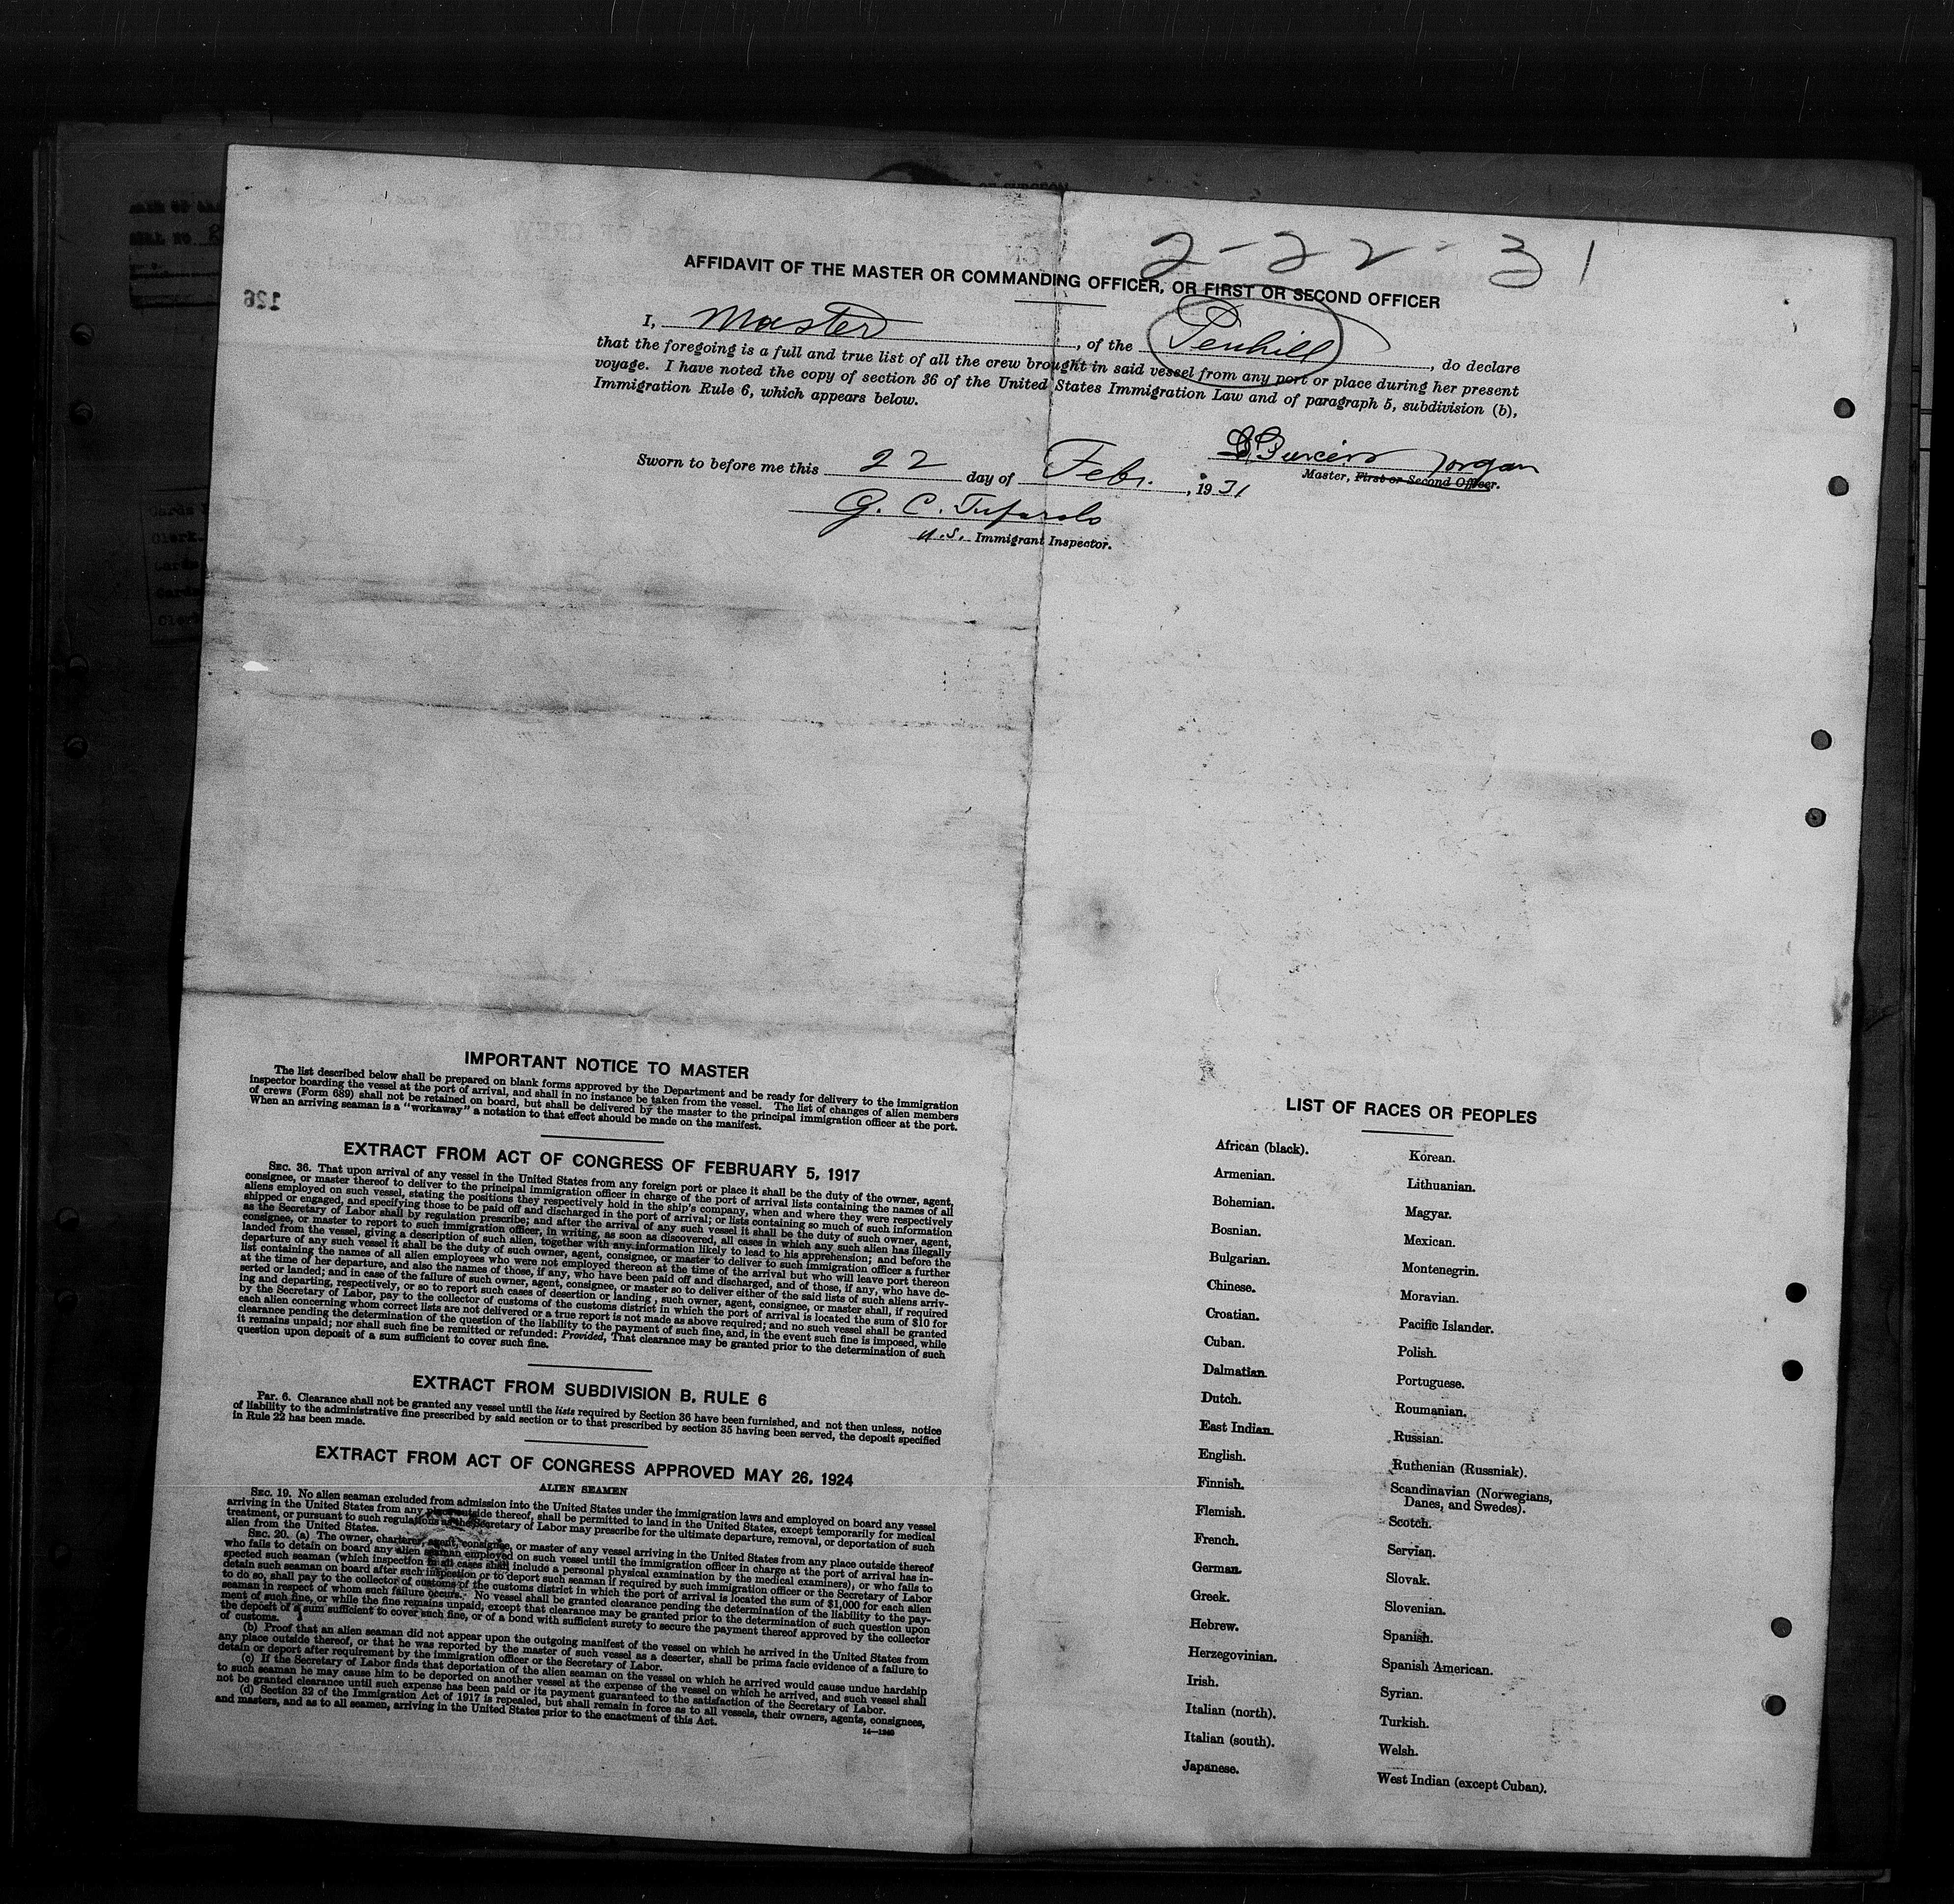 2-22-31
AFFIDAVIT OF THE MASTER OR COMMANDING OFFICER, OR FIRST OR SECOND OFFICER
126
I, Master, of the Penhill, do declare
that the foregoing is a full and true list of all the crew brought in said vessel from any port or place during her present
voyage. I have noted the copy of section 36 of the United States Immigration Law and of paragraph 5, subdivision (b),
Immigration Rule 6, which appears below.
Master, First or Second Officer.
Sworn to before me this 22 day of Febr., 1931
G. C.
U.S. Immigrant Inspector.
IMPORTANT NOTICE TO MASTER
The list described below shall be prepared on blank forms approved by the Department and be ready for delivery to the immigration
inspector boarding the vessel at the port of arrival, and shall in no instance be taken from the vessel. The list of changes of alien members
of crews (Form 689) shall not be retained on board, but shall be delivered by the master to the principal immigration officer at the port.
When an arriving seaman is a "workaway" a notation to that effect should be made on the manifest.
EXTRACT FROM ACT OF CONGRESS OF FEBRUARY 5, 1917
SEC. 36. That upon arrival of any vessel in the United States from any foreign port or place it shall be the duty of the owner, agent,
consignee, or master thereof to deliver to the principal immigration officer in charge of the port of arrival lists containing the names of all
aliens employed on such vessel, stating the positions they respectively hold in the ship's company, when and where they were respectively
shipped or engaged, and specifying those to be paid off and discharged in the port of arrival; or lists containing so much of such information
as the Secretary of Labor shall by regulation prescribe; and after the arrival of any such vessel it shall be the duty of such owner, agent,
consignee, or master to report to such immigration officer, in writing, as soon as discovered, all cases in which any such alien has illegally
landed from the vessel, giving a description of such alien, together with any information likely to lead to his apprehension; and before the
departure of any such vessel it shall be the duty of such owner, agent, consignee, or master to deliver to such immigration officer a further
list containing the names of all alien employees who were not employed thereon at the time of the arrival but who will leave port thereon
at the time of her departure, and also the names of those, if any, who have been paid off and discharged, and of those, if any, who have de-
serted or landed; and in case of the failure of such owner, agent, consignee, or master so to deliver either of the said lists of such aliens arriv-
ing and departing, respectively, or so to report such cases of desertion or landing, such owner, agent, consignee, or master shall, if required
by the Secretary of Labor, pay to the collector of customs of the customs district in which the port of arrival is located the sum of $10 for
each alien concerning whom correct lists are not delivered or a true report is not made as above required; and no such vessel shall be granted
clearance pending the determination of the question of the liability to the payment of such fine, and, in the event such fine is imposed, while
it remains unpaid; nor shall such fine be remitted or refunded: Provided, That clearance may be granted prior to the determination of such
question upon deposit of a sum sufficient to cover such fine.
EXTRACT FROM SUBDIVISION B, RULE 6
Par. 6. Clearance shall not be granted any vessel until the lists required by Section 36 have been furnished, and not then unless, notice
of liability to the administrative fine prescribed by said section or to that prescribed by section 35 having been served, the deposit specified
in Rule 22 has been made.
EXTRACT FROM ACT OF CONGRESS APPROVED MAY 26, 1924
ALIEN SEAMEN
SEC. 19. No alien seaman excluded from admission into the United States under the immigration laws and employed on board any vessel
arriving in the United States from any place outside thereof, shall be permitted to land in the United States, except temporarily for medical
treatment, or pursuant to such regulations as the Secretary of Labor may prescribe for the ultimate departure, removal, or deportation of such
alien from the United States.
SEC. 20. (a) The owner, charterer, agent, consignee, or master of any vessel arriving in the United States from any place outside thereof
who fails to detain on board any alien seaman employed on such vessel until the immigration officer in charge at the port of arrival has in-
spected such seaman (which inspection in all cases shall include a personal physical examination by the medical examiners), or who fails to
detain such seaman on board after such inspection or to deport such seaman if required by such immigration officer or the Secretary of Labor
to do so, shall pay to the collector of customs of the customs district in which the port of arrival is located the sum of $1,000 for each alien
seaman in respect of whom such failure occurs. No vessel shall be granted clearance pending the determination of the liability to the pay-
ment of such fine, or while the fine remains unpaid, except that clearance may be granted prior to the determination of such question upon
the deposit of a sum sufficient to cover such fine, or of a bond with sufficient surety to secure the payment thereof approved by the collector
of customs.
(b) Proof that an alien seaman did not appear upon the outgoing manifest of the vessel on which he arrived in the United States from
any place outside thereof, or that he was reported by the master of such vessel as a deserter, shall be prima facie evidence of a failure to
detain or deport after requirement by the immigration officer or the Secretary of Labor.
(c) If the Secretary of Labor finds that deportation of the alien seaman on the vessel on which he arrived would cause undue hardship
to such seaman he may cause him to be deported on another vessel at the expense of the vessel on which he arrived, and such vessel shall
not be granted clearance until such expense has been paid or its payment guaranteed to the satisfaction of the Secretary of Labor.
(d) Section 32 of the Immigration Act of 1917 is repealed, but shall remain in force as to all vessels, their owners, agents, consignees,
and masters, and as to all seamen, arriving in the United States prior to the enactment of this Act.
LIST OF RACES OR PEOPLES
African (black).
Armenian.
Bohemian.
Bosnian.
Bulgarian.
Chinese.
Croatian.
Cuban.
Dalmatian.
Dutch.
East Indian.
English.
Finnish.
Flemish.
French.
German.
Greek.
Hebrew.
Herzegovinian.
Irish.
Italian (north).
Italian (south).
Japanese.
Korean.
Lithuanian.
Magyar.
Mexican.
Montenegrin.
Moravian.
Pacific Islander.
Polish.
Portuguese.
Roumanian.
Russian.
Ruthenian (Russniak).
Scandinavian (Norwegians,
Danes, and Swedes).
Scotch.
Servian.
Slovak.
Slovenian.
Spanish.
Spanish American.
Syrian.
Turkish.
Welsh.
West Indian (except Cuban).